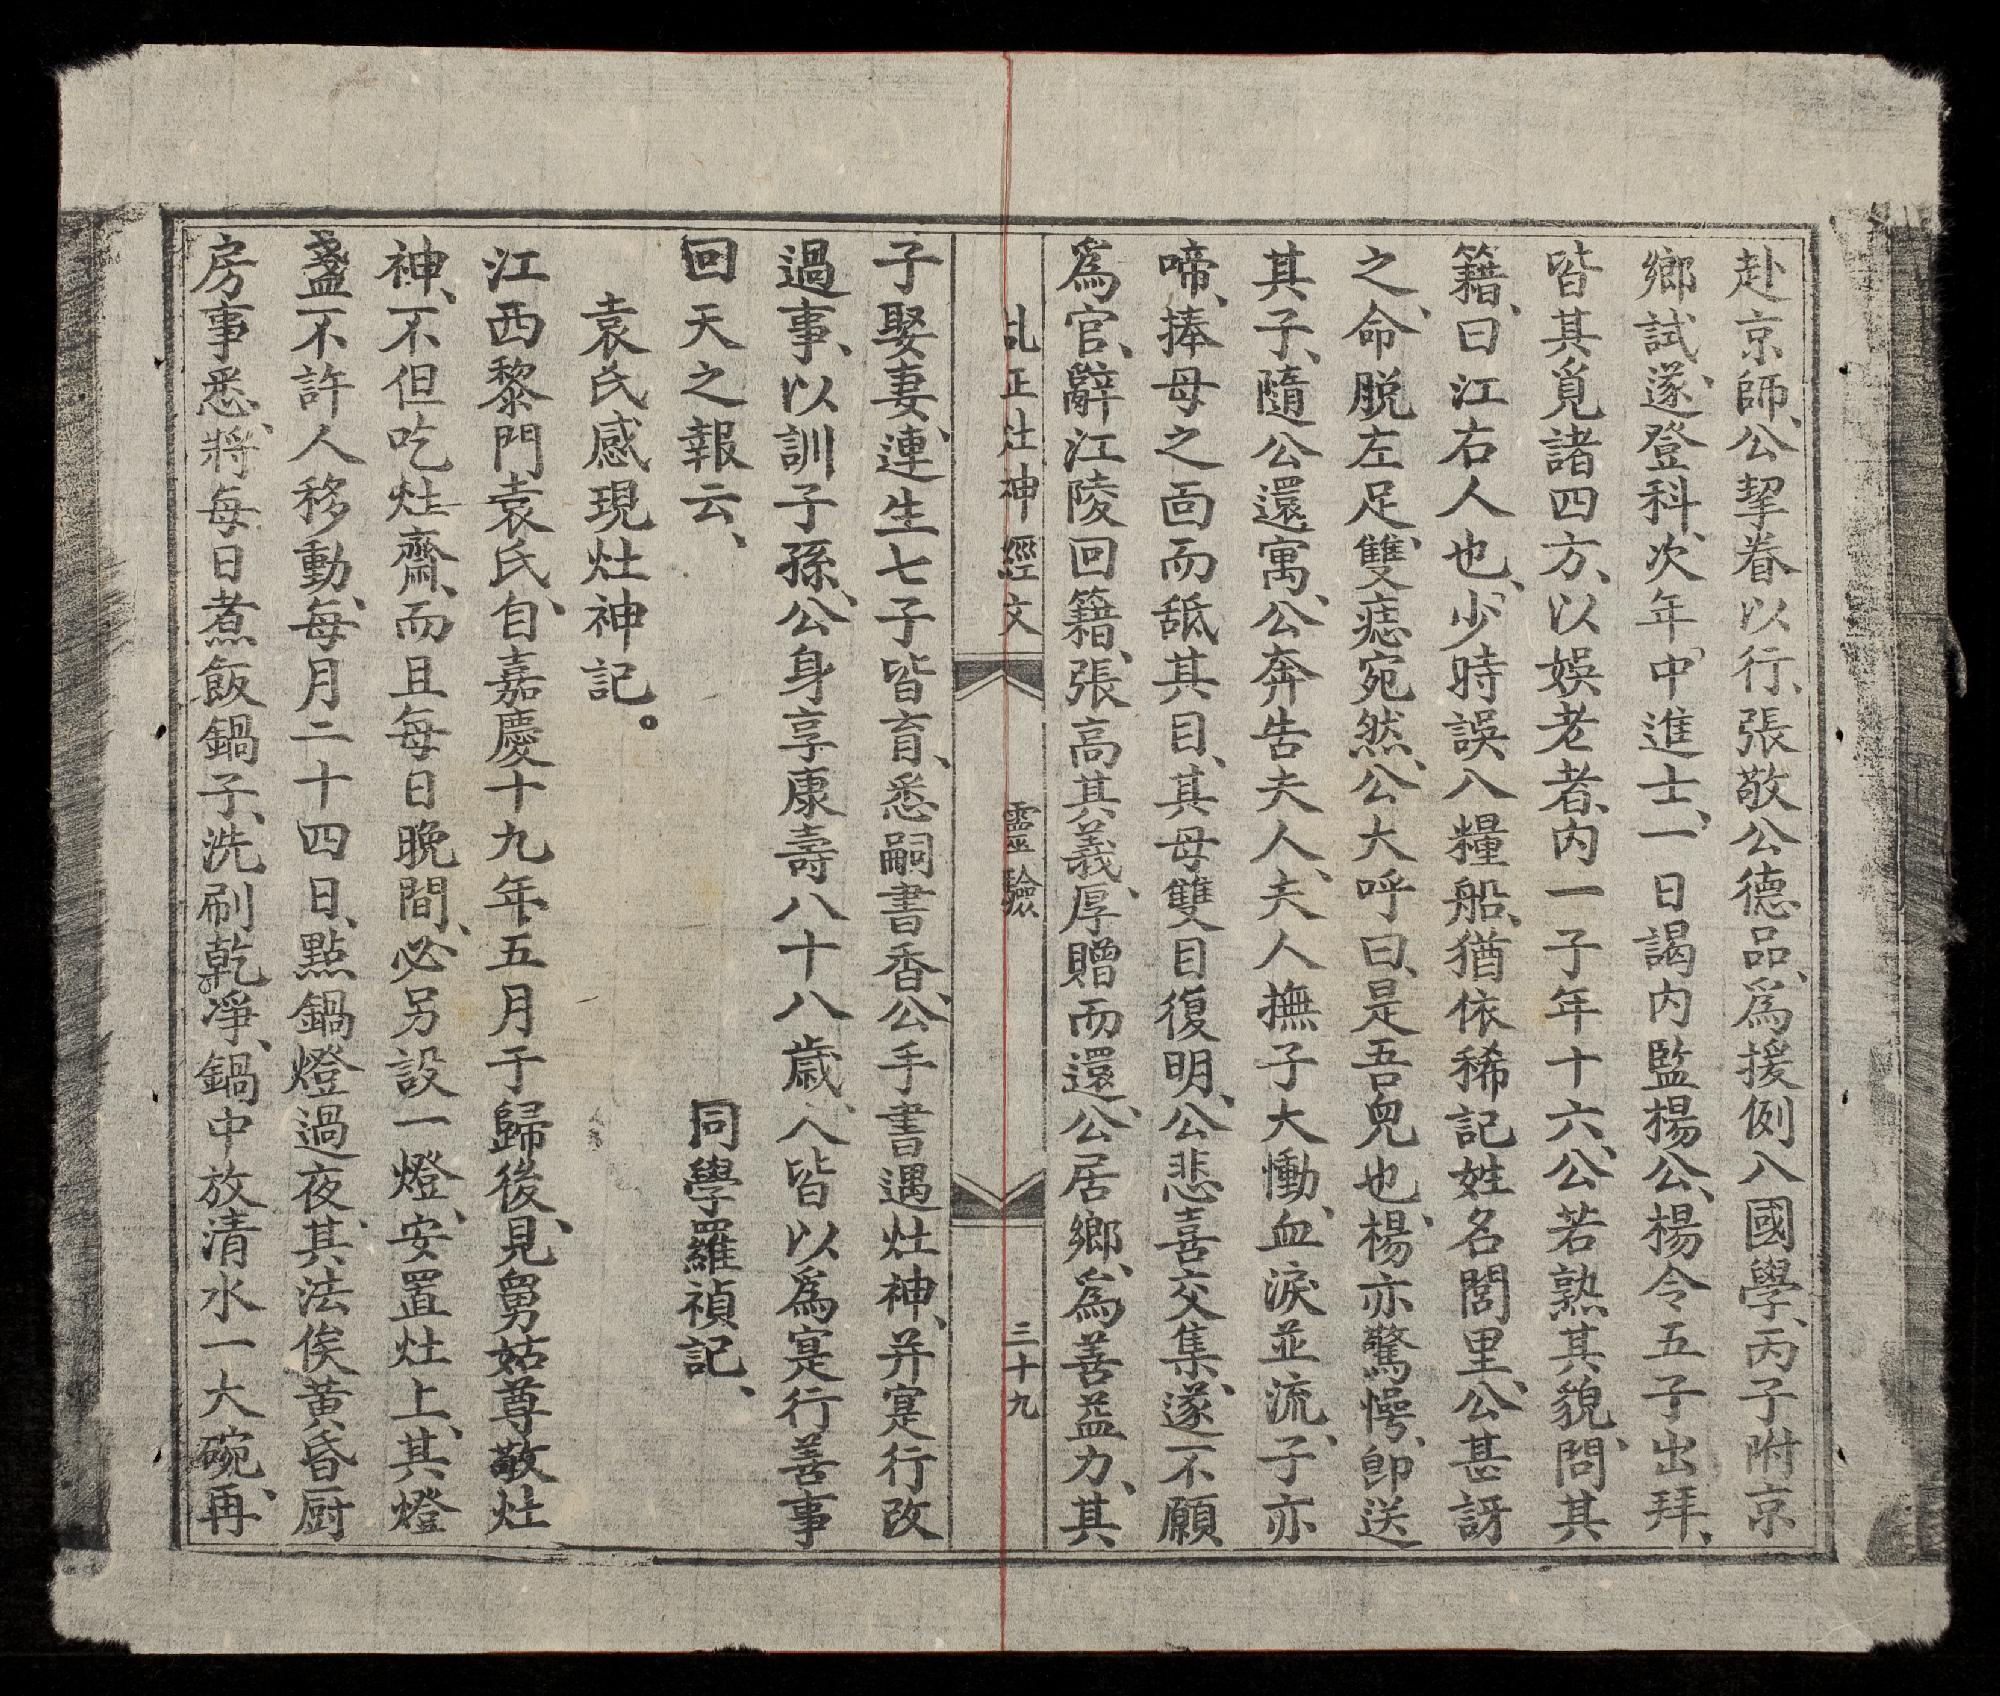 赴京師、公挈眷以行、張敬公德品、爲援例入國學、丙子附京
鄉試、遂登科、次年中進士、一日謁内監楊公、楊令五子出拜、
皆其覓諸四方、以娛老者、内一子年十六、公若熟其貌、問其
籍、曰江右人也、少時誤入糧船、猶依稀記姓名閭里、公甚訝
之、命脱左足、雙痣宛然、公大呼曰、是吾兒也、楊亦驚愕、卽送
其子、隨公還寓、公奔告夫人、夫人撫子大慟、血淚並流、子亦
啼、捧母之面而舐其目、其母雙目復明、公悲喜交集、遂不願
爲官、辭江陵回籍、張高其義、厚贈而還、公居鄉、爲善益力、其
乩正灶神經文 靈驗 三十九
子娶妻、連生七子皆育、悉嗣書香、公手書遇灶神、并寔行改
過事、以訓子孫、公身享康壽八十八歲、人皆以爲寔行善事
回天之報云、 同學羅禎記、
袁氏感現灶神記。
江西黎門袁氏、自嘉慶十九年五月于歸後、見舅姑尊敬灶
神、不但吃灶齋、而且每日晚間、必另設一燈、安置灶上、其燈
盞不許人移動、每月二十四日、點鍋燈過夜、其法俟黃昏厨
房事悉、將每日煮飯鍋子、洗刷乾凈、鍋中放清水一大碗、再